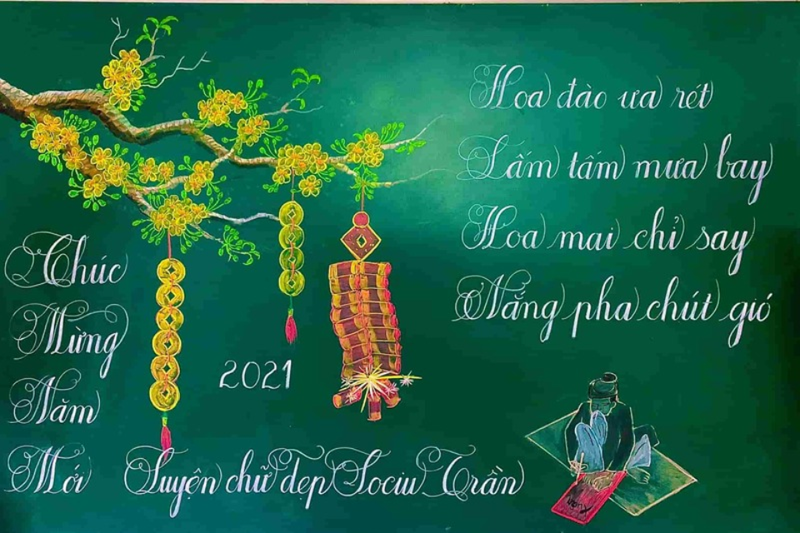 Chúc
Mừng
Năm
Mới
2021
Hoa đào ưa rét
Lấm tấm mưa bay
Hoa mai chỉ say
Nắng pha chút gió
Luyện chữ đẹp Trần